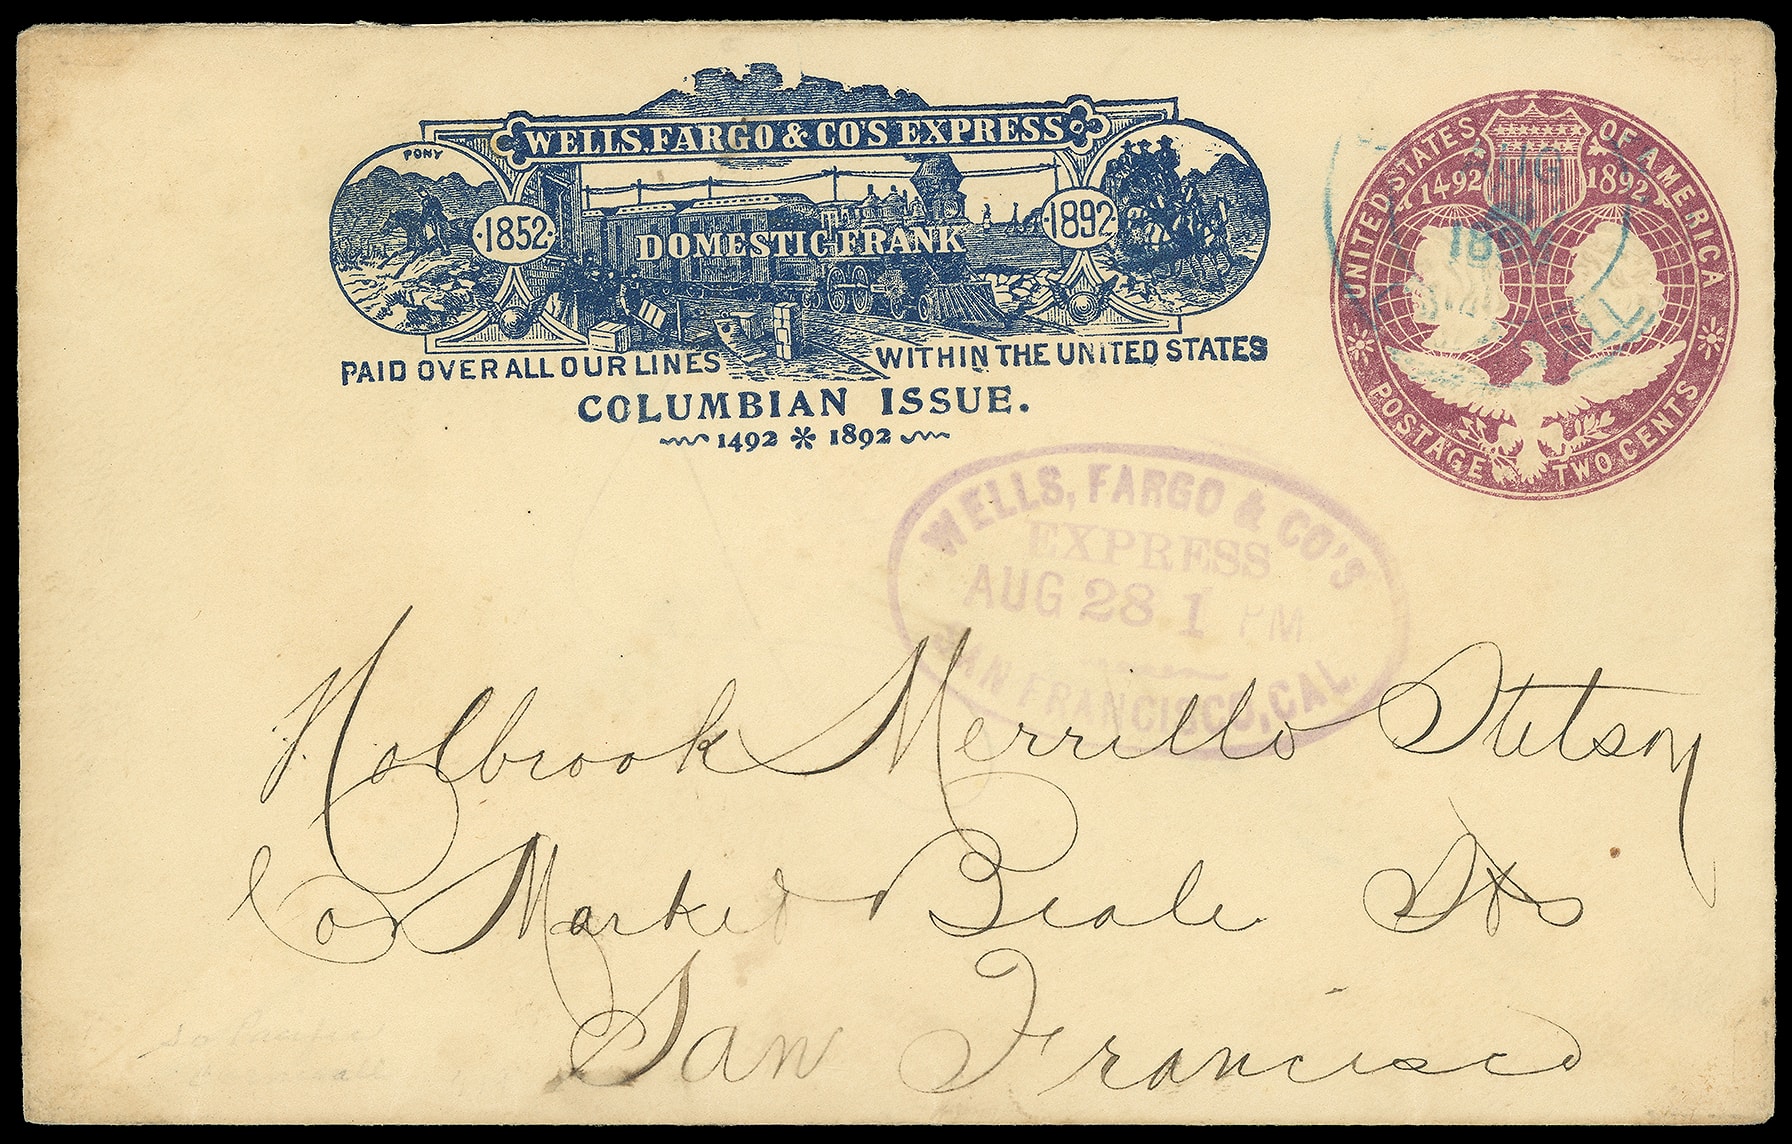 WELLS, FARGO & CO'S EXPRESS
PONY
·1852·
·1892·
DOMESTIC FRANK
PAID OVER ALL OUR LINES WITHIN THE UNITED STATES
COLUMBIAN ISSUE.
1492 * 1892
UNITED STATES OF AMERICA
1492 1892
POSTAGE TWO CENTS
AUG
WELLS, FARGO & CO'S
EXPRESS
AUG 28 1 PM
SAN FRANCISCO, CAL.
Holbrook Merrill Stetson
Cor Market Beale Sts
San Francisco